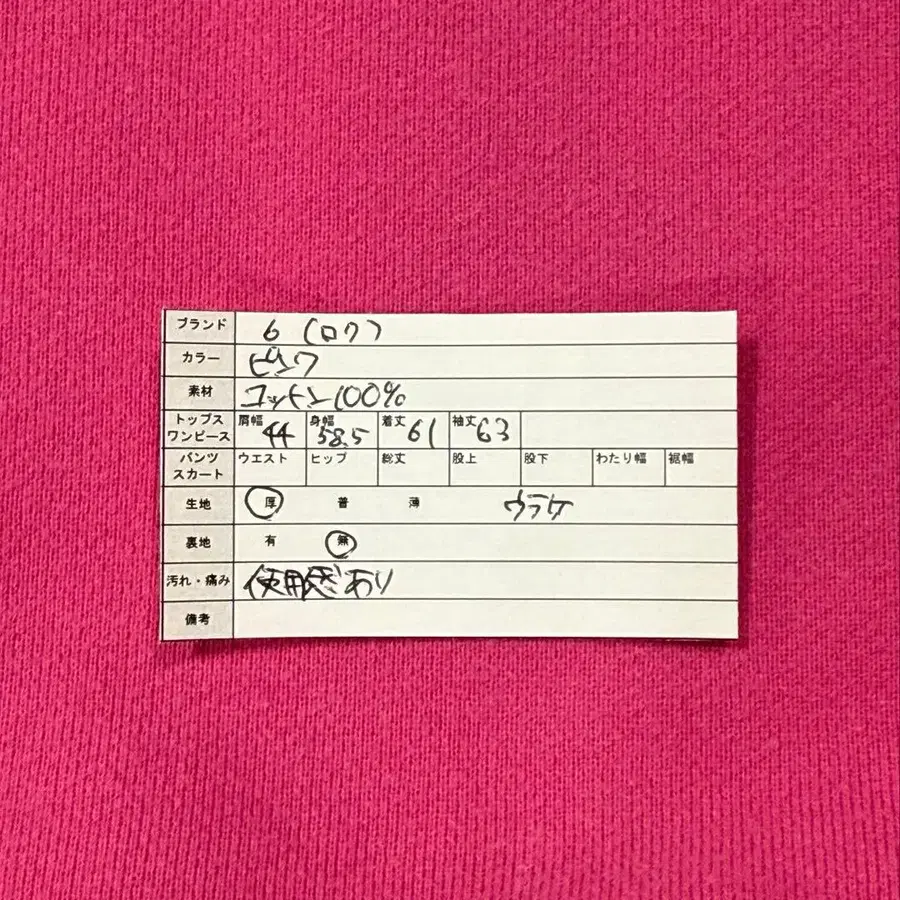 ブランド 6 (ロク)
カラー ピンク
素材 コットン100%
トップス ワンピース 肩幅 44 身幅 58.5 着丈 61 袖丈 63
パンツ スカート ウエスト ヒップ 総丈 股上 股下 わたり幅 裾幅
生地 厚 普 薄 ウラケ
裏地 有 無
汚れ・痛み 使用感あり
備考